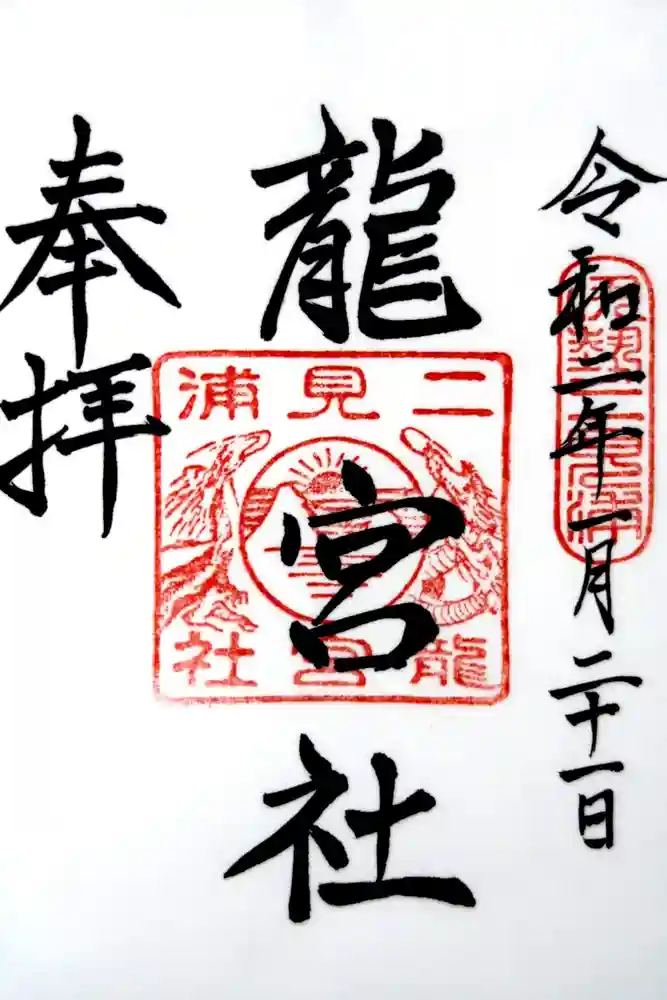 令和二年一月二十一日
伊勢二見浦
龍宮社
二見浦
龍宮社
奉拝